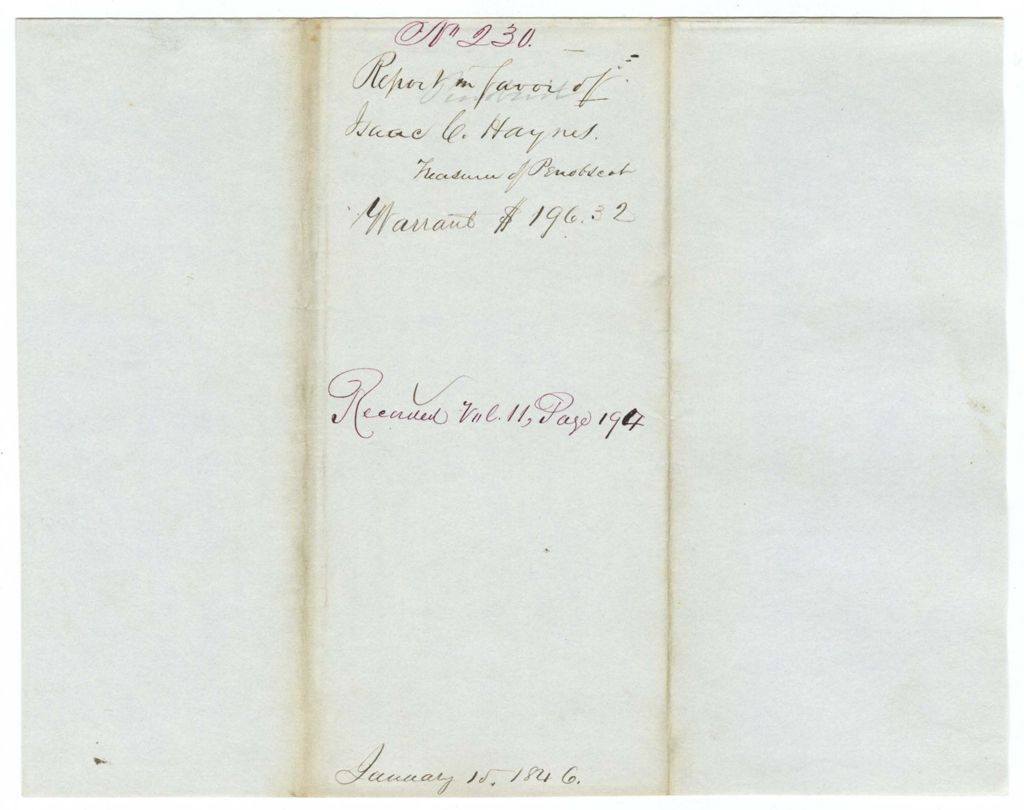 No 230.
Report in favor of
Isaac C. Haynes.
Treasurer of Penobscot
Warrant $ 196.32
Recorded Vol. 11, Page 194
January 15, 1846.